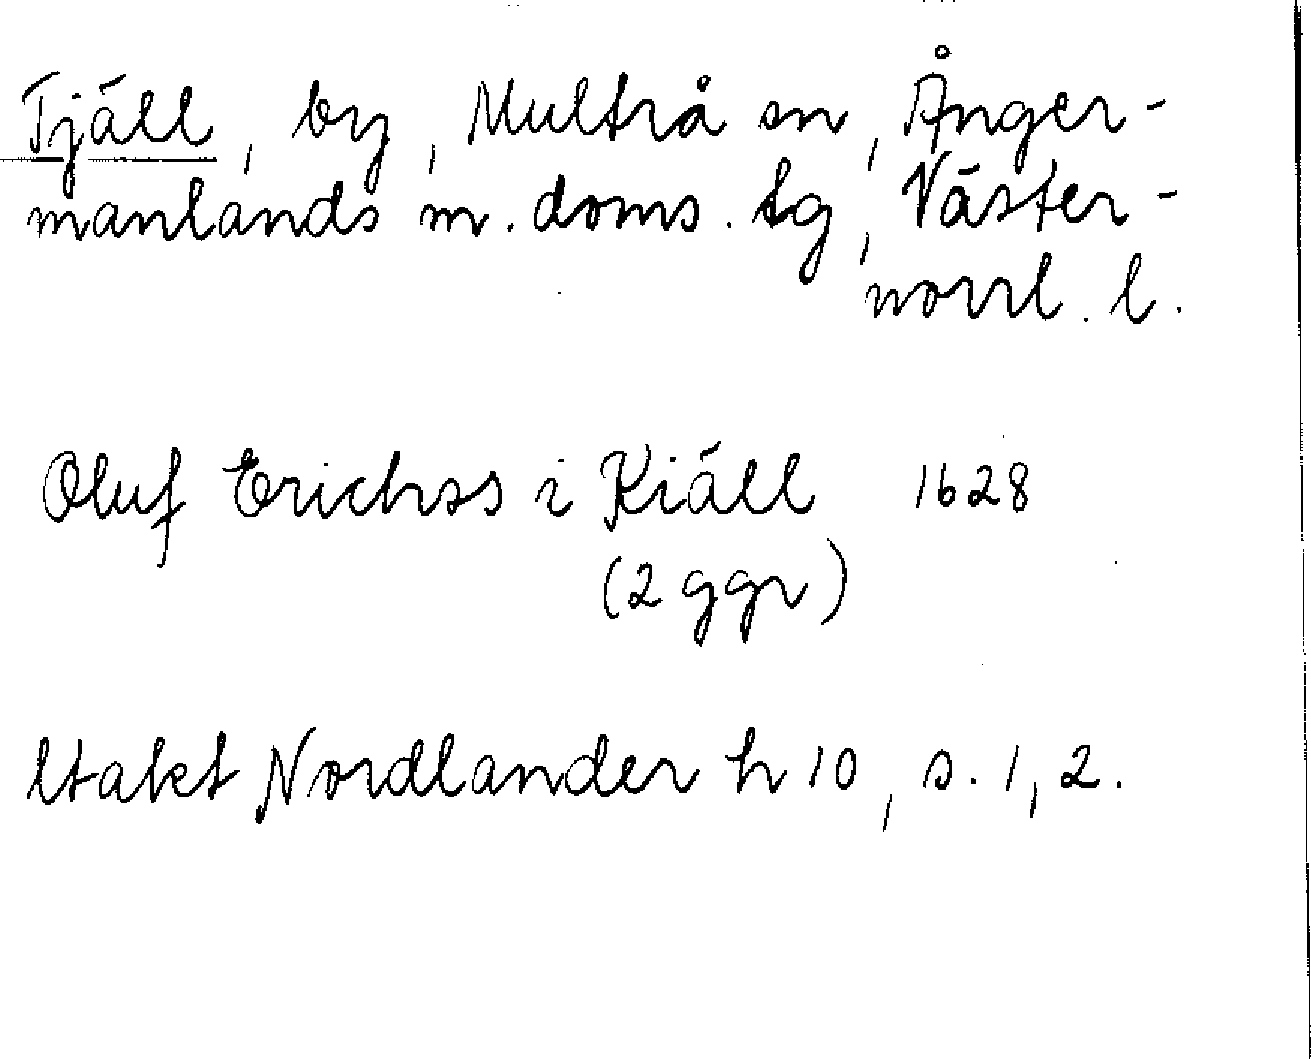 Tjäll, by, Multrå sn, Ånger-
manlands m. doms. tg, Väster-
norrl. l.
Oluf Erichss i Kiäll 1628
(2 ggr)
Utakt Nordlander h 10, s. 1, 2.